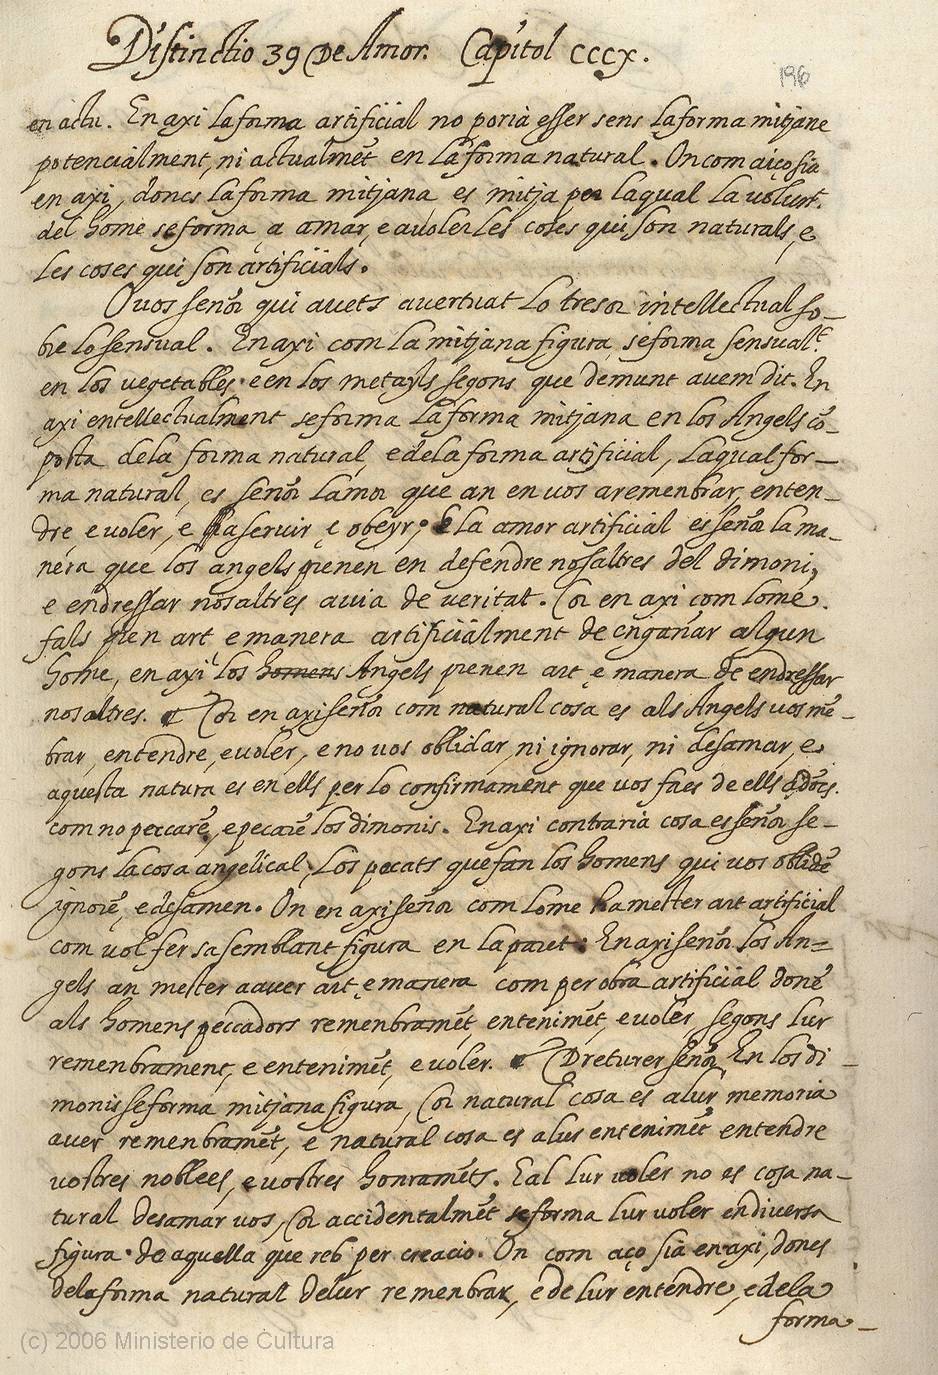 Distinctio 39 De Amor. Capitol CCCX.
196
en actu. En axi la forma artificial no poria esser sens la forma mitjane
potencialment, ni actualmēt en la forma natural. On com aiço sia
en axi, doncs la forma mitjana es mitja per laqual la volunt.
del home se forma, a amar, e a voler les coses qui son naturals, e
les coses qui son artificials.
O vos señor qui avets avertuat lo tresor intellectual so-
bre lo sensual. En axi com la mitjana figura, se forma sensualt
en los vegetables. e en los metayls segons que demunt avem dit. En
axi entellectualment se forma la forma mitjana en los Angels cō-
posta dela forma natural, e dela forma artificial, laqual for-
ma natural, es señor lamor que an en vos a remenbrar, enten-
dre, e voler, e a servir, e obeyr; e la amor artificial es señor la ma-
nera que los angels prenen en defendre nosaltres del dimoni,
e endressar nosaltres a via de veritat. Cor en axi com lome
fals pren art e manera artificialment de engañar algun
home, en axi los homens Angels prenen art e manera de endressar
nosaltres. Cor en axi señor com natural cosa es als Angels vos mē-
brar, entendre, e voler, e no vos oblidar, ni ignorar, ni desamar, e
aquesta natura es en ells per lo confirmament que vos faes de ells adōcs.
com no peccarē, e pecarē los dimonis. En axi contraria cosa es señor se-
gons la cosa angelical, Los pecats que fan los homens qui vos oblidē
ignorē, e desamen. On en axi señor com lome ha mester art artificial
com vol fer sa semblant figura en la paret: En axi señor los An=
gels an mester a aver art e manera com per obra artificial donē
als homens peccadors remenbramēt, entenimēt, e voler segons lur
remenbrament, e entenimēt, e voler. Dreturer señor, En los di-
monis se forma mitjana figura, Cor natural cosa es a lur memoria
aver remenbramēt, e natural cosa es a lus entenimēt entendre
vostres noblees, e vostres honramēts. E al lur voler no es cosa na-
tural desamar vos, Cor accidentalmēt se forma lur voler en diversa
figura. de aquella que reb per creacio. On com aço sia en axi, doncs
dela forma natural de lur remenbrar, e de lur entendre, e dela
forma-
(c) 2006 Ministerio de Cultura